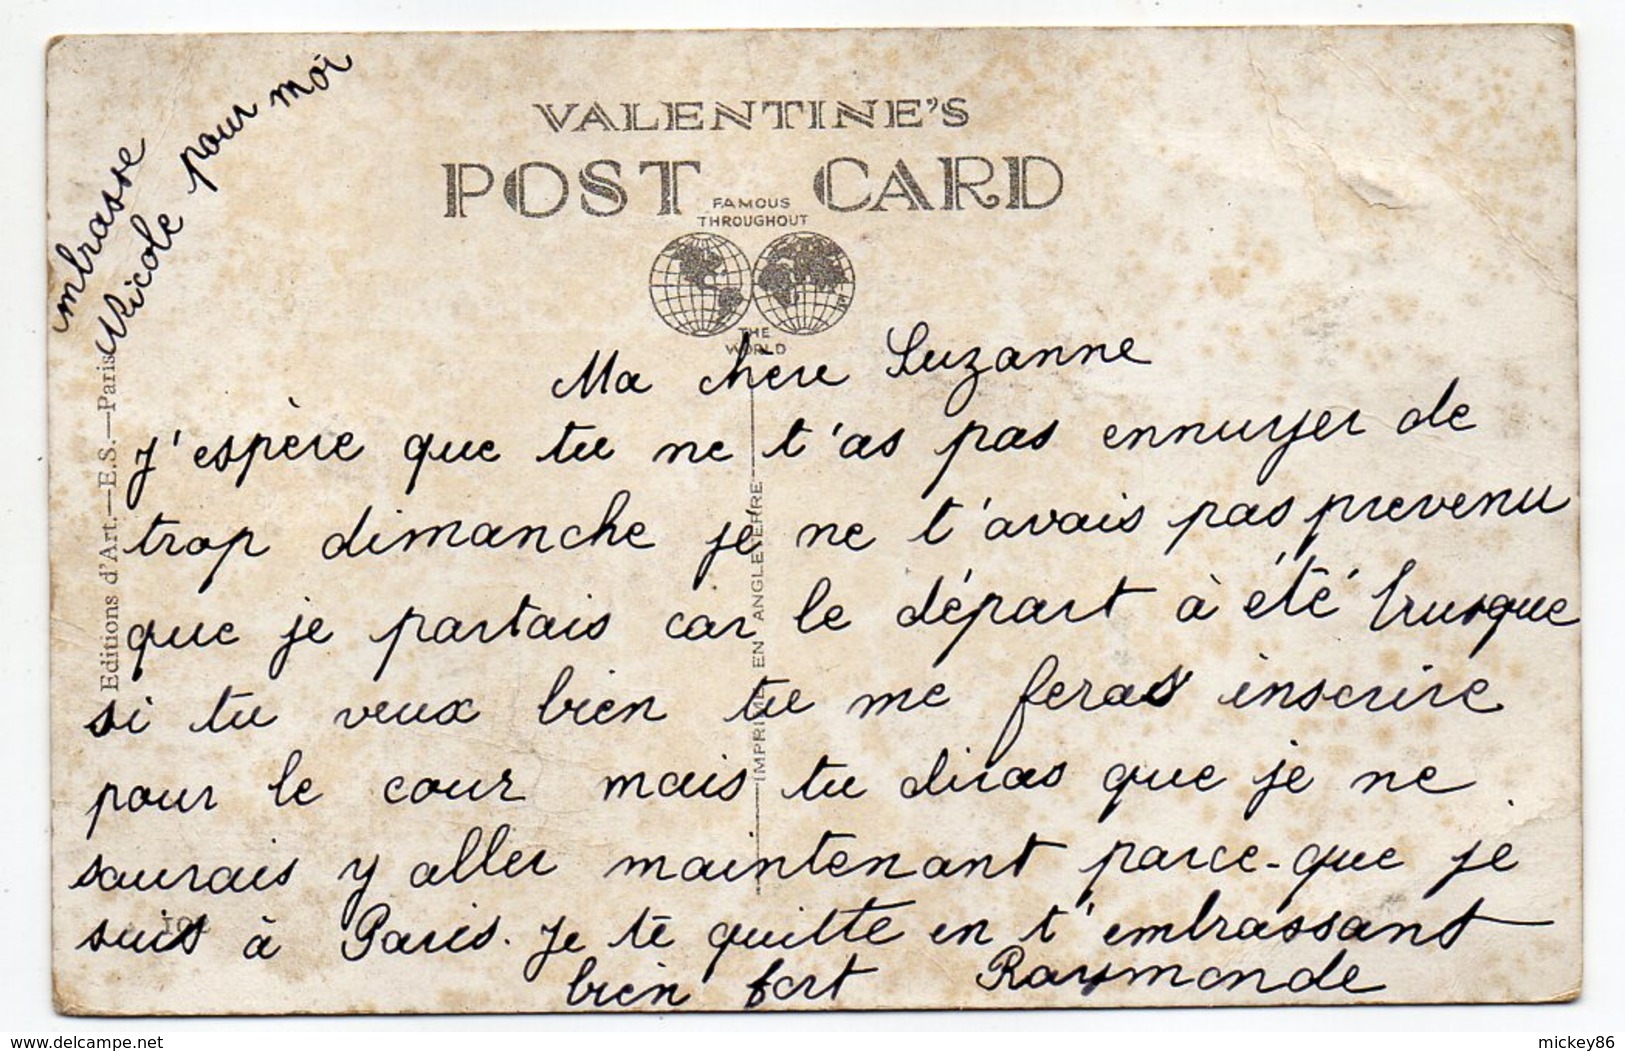 mbrasse
Nicole pour moi
VALENTINE'S
POST CARD
FAMOUS
THROUGHOUT
THE
WORLD
Editions d'Art.—E.S.—Paris
IMPRIMÉ EN ANGLETERRE
Ma chère Suzanne
J'espère que tu ne t'as pas ennuyer de
trop dimanche je ne t'avais pas prevenu
que je partais car le départ à été brusque
si tu veux bien tu me feras inscrire
pour le cour mais tu diras que je ne
saurais y aller maintenant parce-que je
suis à Paris. Je te quitte en t'embrassant
bien fort Raymonde
www.delcampe.net
mickey86